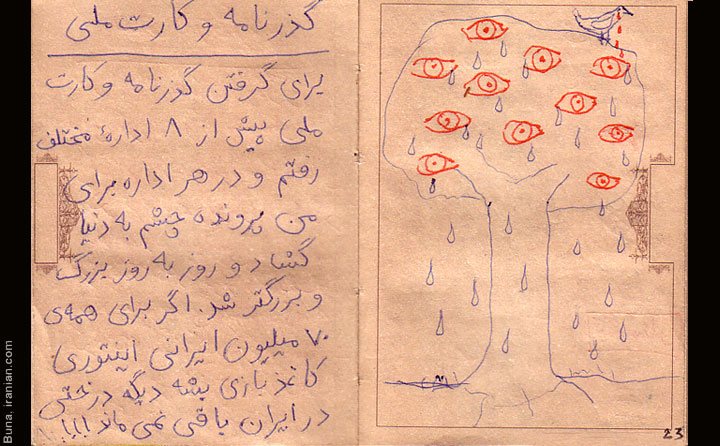 گذرنامه و کارت ملی
برای گرفتن گذرنامه و کارت
ملی بیش از ۸ ادارهٔ مختلف
رفتم و در هر اداره برای
من پرونده چشم به دنیا
گشاد و روز به روز بزرگ
و بزرگتر شد. اگر برای همه‌ی
۷۰ میلیون ایرانی اینتوری
کاغذ بازی بشه دیگه درختی
در ایران باقی نمی ماند!!!!
23
Buna, iranian.com